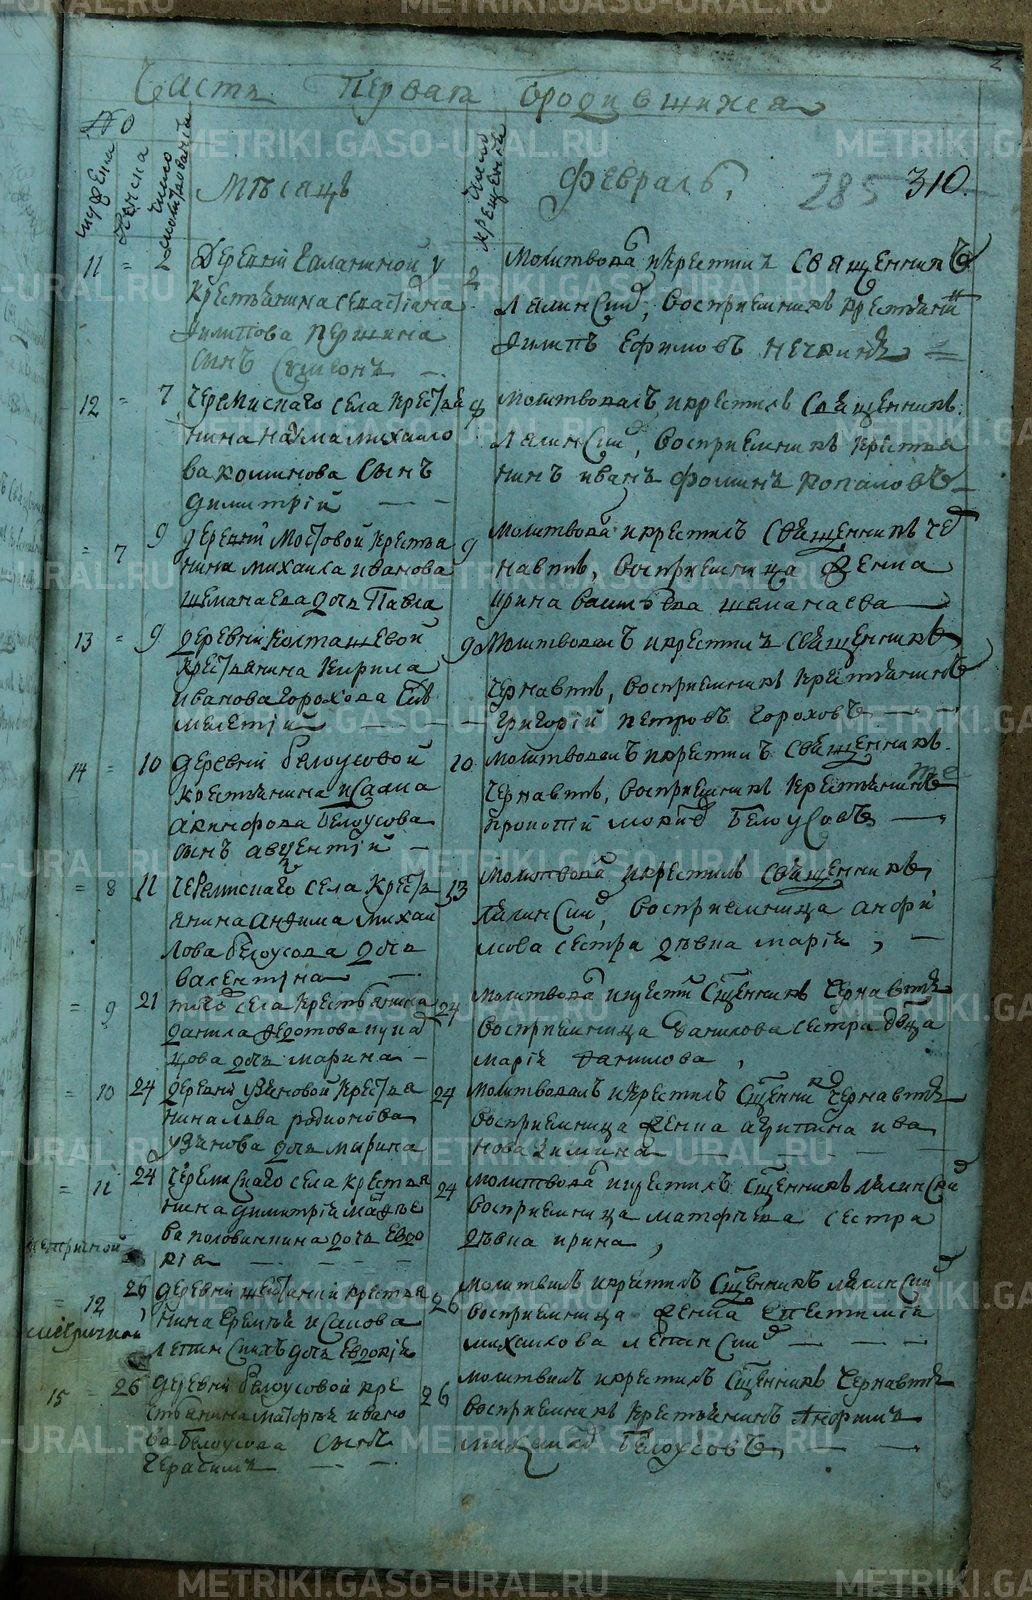 Часть первая о родившихся
№
мужеска
женска
число молитвования
Мѣсяцъ
число крещения
Февраль,
285
310.
11 = 2
Деревни Галаниной у
крестьянина Севастiана
Филипова Першина
сынъ Сѵмеонъ —
2
Молитвовалъ и крестилъ священникъ
Лялинскiй, восприемникъ крестьянинъ
Филипъ Ефимовъ Нечкинъ =
12 = 7
Черемисскаго села крестья
нина Наума Михайло
ва Коминова сынъ
Димитрiй — —
8
Молитвовалъ и крестилъ священникъ
Лялинскiй, восприемникъ крестья
нинъ Иванъ Фоминъ Копаловъ
= 7 9
деревни Мостовой крестья
нина Михаила Иванова
Шеманаева дочь Павла
9
Молитвовалъ и крестилъ священникъ Чер
навинъ, восприемница женка
Ирина Васильева Шеманаева
13 = 9
деревни Колташевой
крестьянина Кирила
Иванова Горохова сынъ
Мелетiй — —
9
Молитвовалъ и крестилъ священникъ
Чернавинъ, восприемникъ крестьянинъ
Григорiй Петровъ Гороховъ — —
14 = 10
деревни Белоусовой
крестьянина Исаака
Акинфова Белоусова
сынъ Авѯентiй —
10
Молитвовалъ и крестилъ священникъ
Чернавинъ, восприемникъ крестьянинъ
Прокопiй Белоусовъ —
= 8 12
Черемисскаго села крестья
янина Анфима Михай
лова Белоусова дочь
Валентина — —
13
Молитвовалъ и крестилъ священникъ
Лялинскiй, восприемница
сестра дѣвка Марiя, —
= 9 21
села крестьянина
Данила Федотова
дочь Марина —
24
Молитвовалъ и крестилъ священникъ Чернавинъ
восприемница Данилова сестра девица
Марiя Данилова,
= 10 24
деревни Узяновой крестья
нина Льва Родионова
Узянова дочь Марина
24
Молитвовалъ и крестилъ священникъ Чернавинъ
восприемница женка Агрипина Ива
нова Зимина — — —
= 11 24
Черемисскаго села крестья
нина Димитрiя Матфее
ва Половинкина дочь Евдо
кiя — — —
24
Молитвовалъ и крестилъ священникъ Лялинскiй
восприемница Матфеева сестра
дѣвка Ирина,
= 12 26
деревни крестья
нина Еремѣя Исакова
дочь Евдокiя
26
Молитвилъ и крестилъ священникъ Лялинскiй
восприемница женка Епестимiя
Михайлова — —
15 = 26
деревни Белоусовой кре
стьянина Матфѣя Ивано
ва Белоусова сынъ
Герасимъ — —
26
Молитвилъ и крестилъ священникъ Чернавинъ
восприемникъ крестьянинъ
Белоусовъ, — —
METRIKI.GASO-URAL.RU